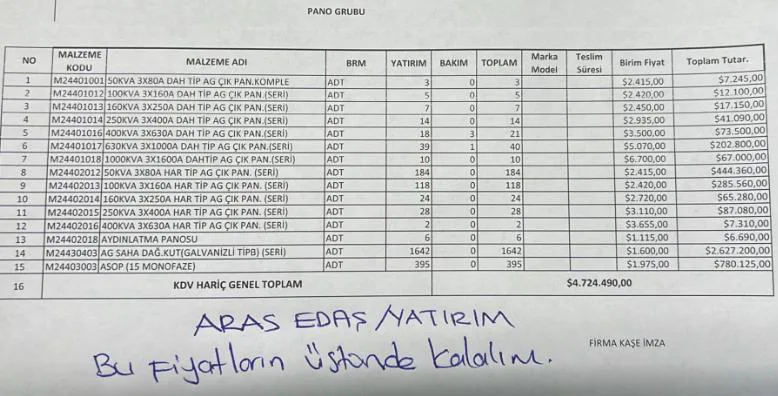 PANO GRUBU
NO MALZEME KODU MALZEME ADI BRM YATIRIM BAKIM TOPLAM Marka Model Teslim Süresi Birim Fiyat Toplam Tutar.
1 M24401001 50KVA 3X80A DAH TİP AG ÇIK PAN.KOMPLE ADT 3 0 3 $2.415,00 $7.245,00
2 M24401012 100KVA 3X160A DAH TİP AG ÇIK PAN.(SERİ) ADT 5 0 5 $2.420,00 $12.100,00
3 M24401013 160KVA 3X250A DAH TİP AG ÇIK PAN.(SERİ) ADT 7 0 7 $2.450,00 $17.150,00
4 M24401014 250KVA 3X400A DAH TİP AG ÇIK PAN.(SERİ) ADT 14 0 14 $2.935,00 $41.090,00
5 M24401016 400KVA 3X630A DAH TİP AG ÇIK PAN.(SERİ) ADT 18 3 21 $3.500,00 $73.500,00
6 M24401017 630KVA 3X1000A DAH TİP AG ÇIK PAN.(SERİ) ADT 39 1 40 $5.070,00 $202.800,00
7 M24401018 1000KVA 3X1600A DAHTİP AG ÇIK PAN.(SERİ) ADT 10 0 10 $6.700,00 $67.000,00
8 M24402012 50KVA 3X80A HAR TİP AG ÇIK PAN. (SERİ) ADT 184 0 184 $2.415,00 $444.360,00
9 M24402013 100KVA 3X160A HAR TİP AG ÇIK PAN. (SERİ) ADT 118 0 118 $2.420,00 $285.560,00
10 M24402014 160KVA 3X250A HAR TİP AG ÇIK PAN. (SERİ) ADT 24 0 24 $2.720,00 $65.280,00
11 M24402015 250KVA 3X400A HAR TİP AG ÇIK PAN. (SERİ) ADT 28 0 28 $3.110,00 $87.080,00
12 M24402016 400KVA 3X630A HAR TİP AG ÇIK PAN. (SERİ) ADT 2 0 2 $3.655,00 $7.310,00
13 M24402018 AYDINLATMA PANOSU ADT 6 0 6 $1.115,00 $6.690,00
14 M24430403 AG SAHA DAĞ.KUT(GALVANİZLİ TİPB) (SERİ) ADT 1642 0 1642 $1.600,00 $2.627.200,00
15 M24403003 ASOP (15 MONOFAZE) ADT 395 0 395 $1.975,00 $780.125,00
16 KDV HARİÇ GENEL TOPLAM $4.724.490,00
ARAS EDAŞ/YATIRIM
Bu Fiyatların üstünde kalalım.
FİRMA KAŞE İMZA